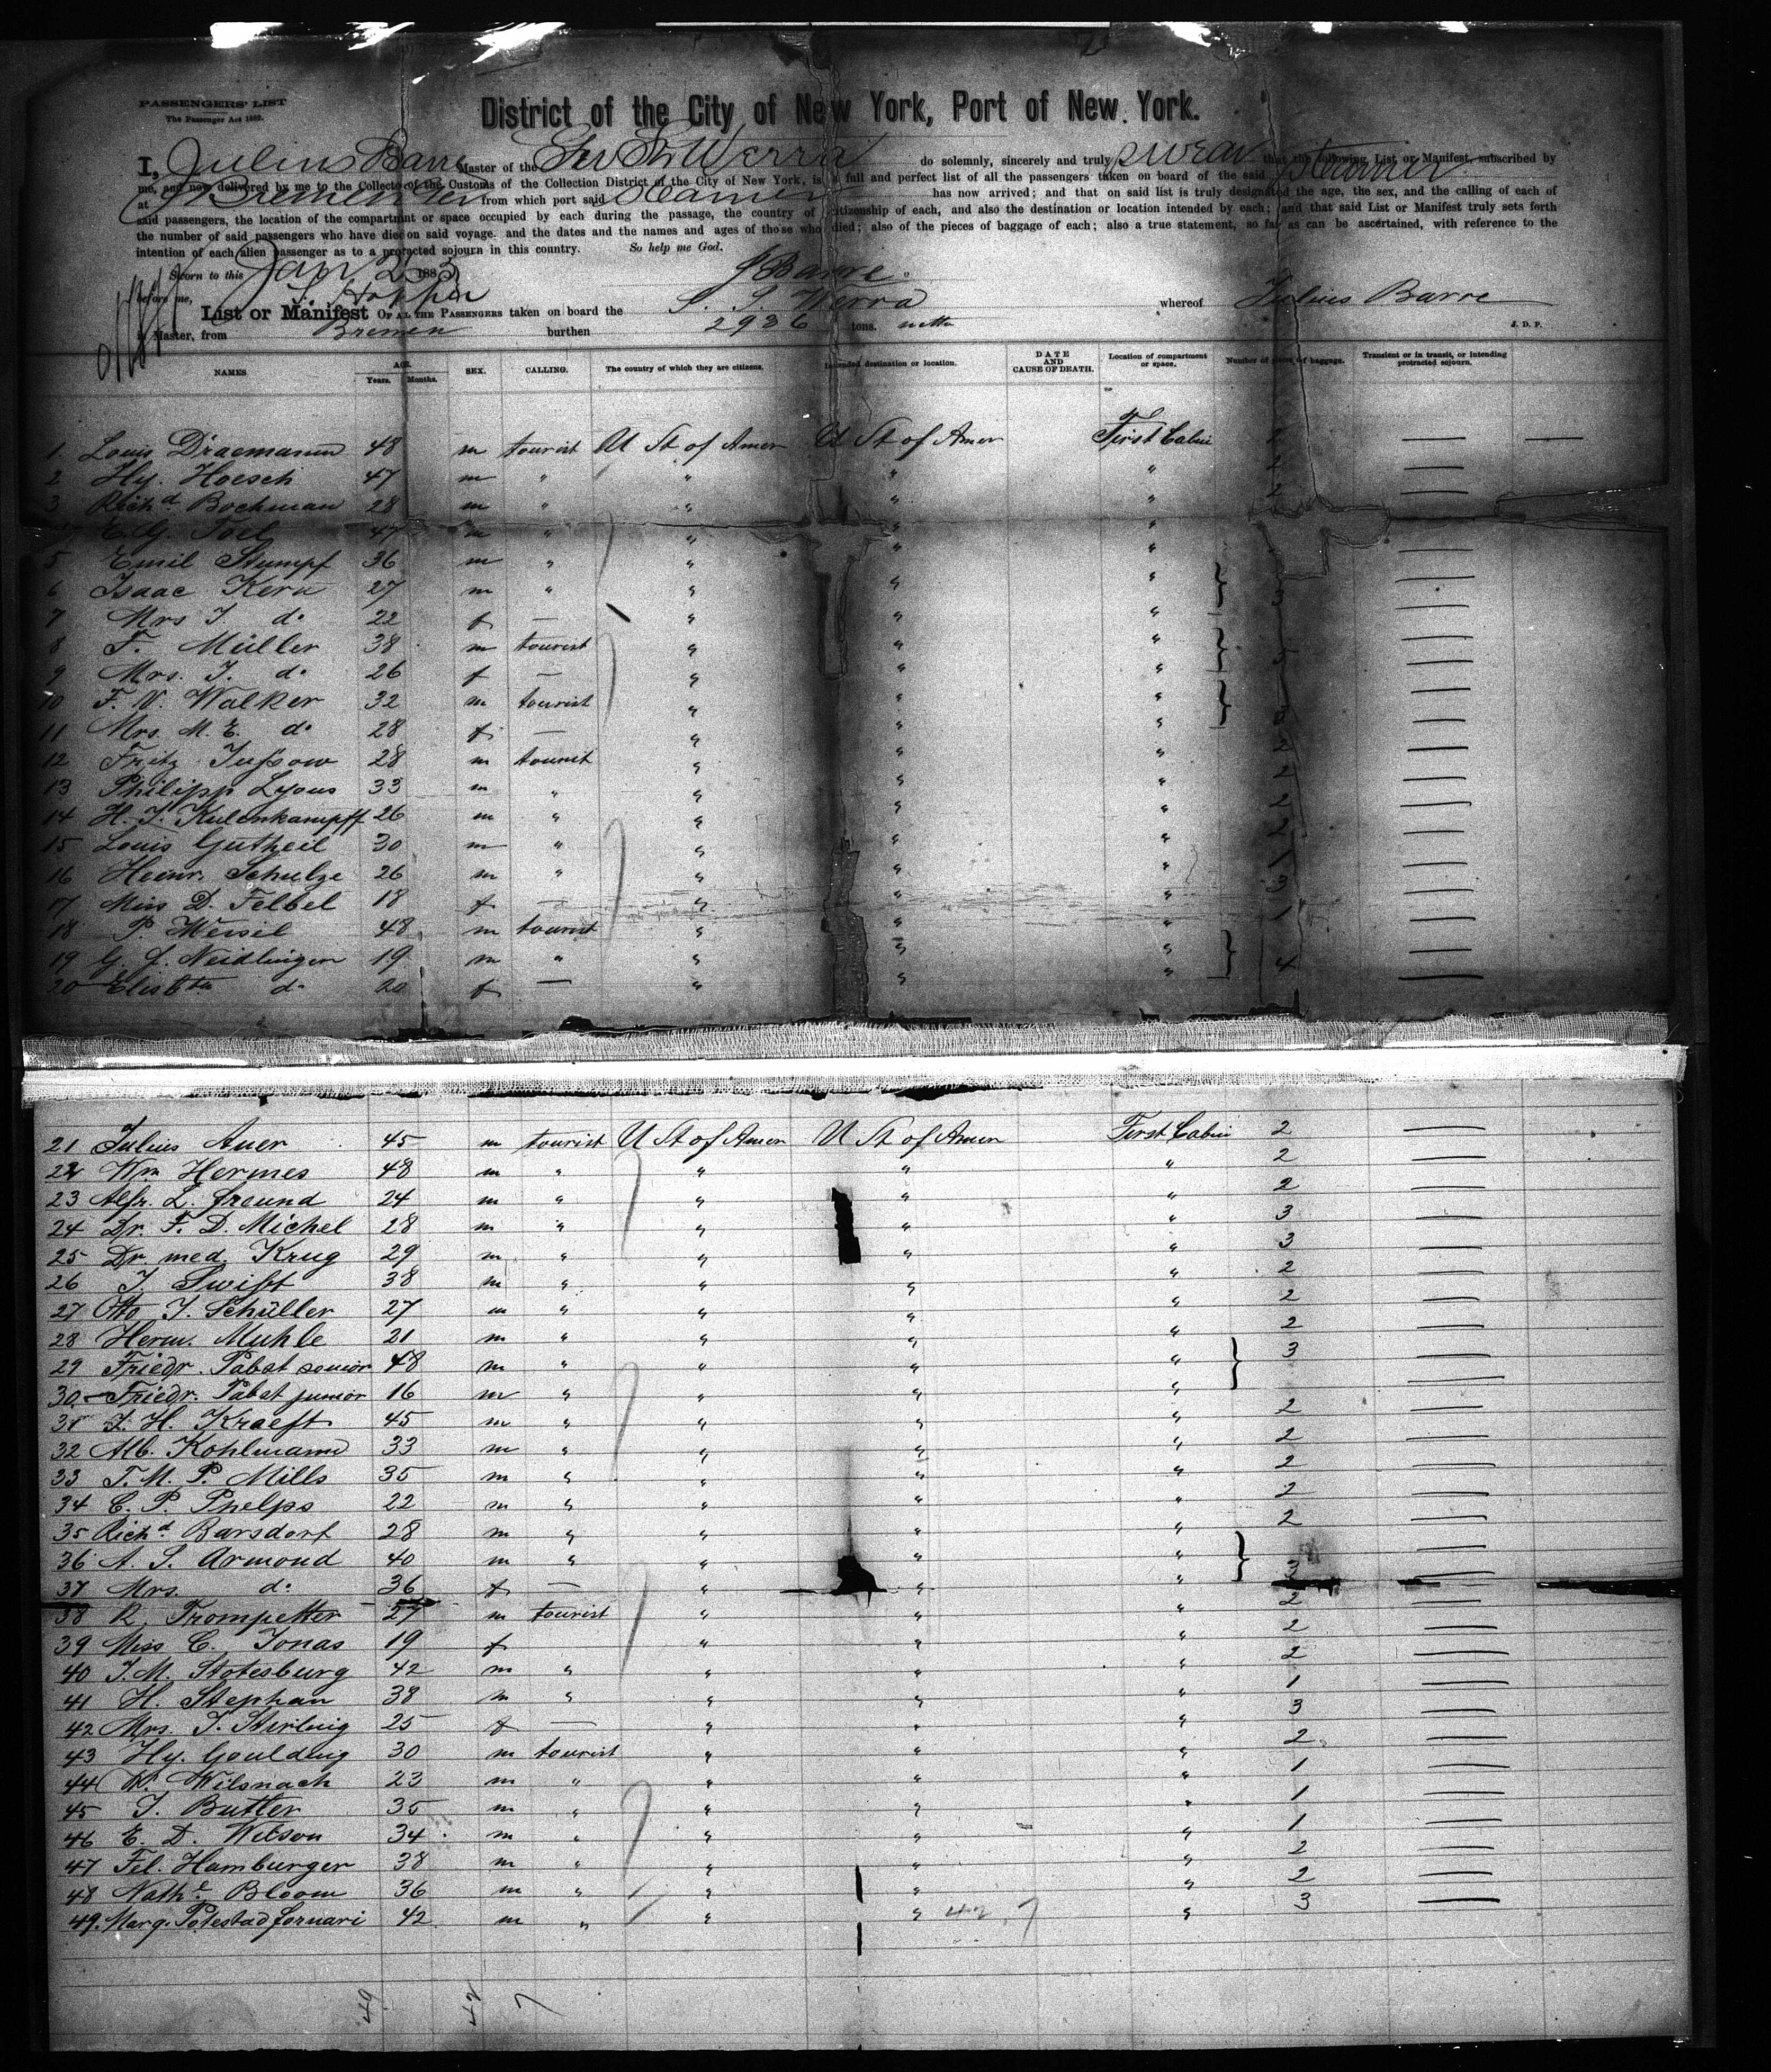 PASSENGERS' LIST
The Passenger Act 1882.
District of the City of New York, Port of New York.
I, Julius Barre Master of the Werra do solemnly, sincerely and truly swear that the following List or Manifest, subscribed by
me, and now delivered by me to the Collector of the Customs of the Collection District of the City of New York, is a full and perfect list of all the passengers taken on board of the said Steamer
at Bremen from which port said Steamer has now arrived; and that on said list is truly designated the age, the sex, and the calling of each of
said passengers, the location of the compartment or space occupied by each during the passage, the country of citizenship of each, and also the destination or location intended by each; and that said List or Manifest truly sets forth
the number of said passengers who have died on said voyage. and the dates and the names and ages of those who died; also of the pieces of baggage of each; also a true statement, so far as can be ascertained, with reference to the
intention of each alien passenger as to a protracted sojourn in this country. So help me God.
Sworn to this Jan 2 1883 J Barre
before me,
List or Manifest OF ALL THE PASSENGERS taken on board the S. S. Werra whereof Julius Barre
is Master, from Bremen burthen 2936 tons. netto J. D. P.
NAMES AGE. Years. Months. SEX. CALLING. The country of which they are citizens. Intended destination or location. DATE AND CAUSE OF DEATH. Location of compartment or space. Number of pieces of baggage. Transient or in transit, or intending protracted sojourn.
1. Louis Draemann 48 m tourist U St of Amer U St of Amer First Cabin
2 Hy. Hoesch 47 m " " " " 2 —
3 Richd. Bochman 28 m " " " " 2 —
E. G. Toel 47 m " " " "
5 Emil Stumpf 36 m " " " " —
6 Isaac Kern 27 m " " " " 3 —
7 Mrs J. do 22 f — " " " —
8 F. Müller 38 m tourist " " " 5 —
9 Mrs. J. do 26 f — " " " —
10 F. V. Walker 32 m tourist " " " —
11 Mrs. M. E. do 28 f — " " " —
12 Fritz Jußow 28 m tourist " " " 2 —
13 Philipp Lyons 33 m " " " " 2 —
14 H. J. Kulenkampff 26 m " " " " 2 —
15 Louis Gutheil 30 m " " " " 2 —
16 Heinr. Schulze 26 m " " " " 1 —
17 Miss D. Felbel 18 f — " " " 3 —
18 P. Weisel 48 m tourist " " " 1 —
19 G. L. Neidlinger 19 m " " " " 4 —
20 Elisbth do 20 f — " " " —
21 Julius Auer 45 m tourist U St of Amer U St of Amer First Cabin 2 —
22 Wm Hermes 48 m " " " " 2 —
23 Alfr. L. Freund 24 m " " " " 2 —
24 Dr. F. D. Michel 28 m " " " " 3 —
25 Dr. med. Krug 29 m " " " " 3 —
26 J. Swift 38 m " " " " 2 —
27 Otto J. Schüller 27 m " " " " 2 —
28 Herm. Muhle 21 m " " " " 2 —
29 Friedr. Pabst senior 48 m " " " " 3 —
30 Friedr. Pabst junior 16 m " " " " —
31 F. H. Kraeft 45 m " " " " 2 —
32 Alb. Kohlmann 33 m " " " " 2 —
33 T. M. P. Mills 35 m " " " " 2 —
34 C. P. Phelps 22 m " " " " 2 —
35 Richd. Barsdorf 28 m " " " " 2 —
36 A. S. Armond 40 m " " " " 3 —
37 Mrs. do 36 f — " " " —
38 R. Trompetter 27 m tourist " " " 2 —
39 Miss C. Jonas 19 f " " " 2 —
40 J. M. Stotesburg 42 m " " " " 2 —
41 H. Stephan 38 m " " " " 1 —
42 Mrs. J. Stirling 25 f — " " " 3 —
43 Hy. Goulding 30 m tourist " " " 2 —
44 W. Wilsnach 23 m " " " " 1 —
45 J. Butler 35 m " " " " 1 —
46 E. D. Wilson 34 m " " " " 1 —
47 Fel. Hamburger 38 m " " " " 2 —
48 Nathl. Bloom 36 m " " " " 2 —
49. Marq. Potestad fornari 42 m " " " 42. 7 " 3 —
49 42 7